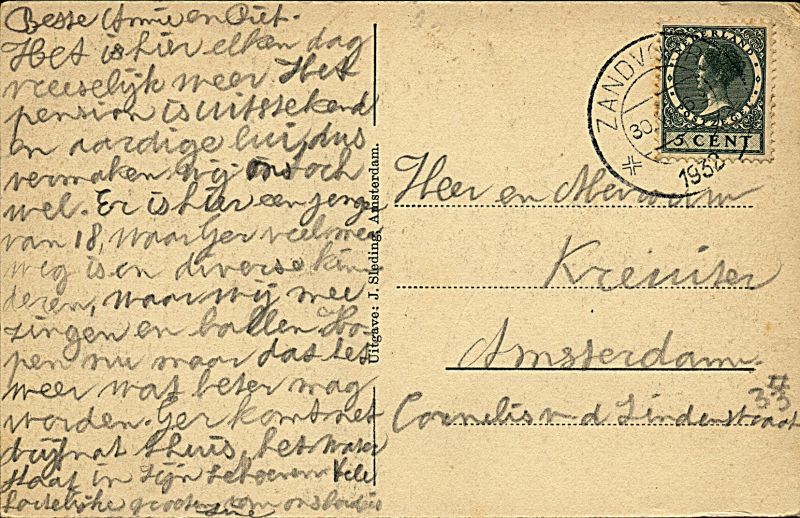 Beste Annie en Piet.
Het is hier elken dag
vreeselijk weer Het
pension is uitstekend
en aardige lui, dus
vermaken wij ons toch
wel. Er is hier een jongen
van 18, waar Ger veel mee
weg is en diverse kin
deren, waar wij mee
zingen en ballen Ho
pen nu maar dat het
weer wat beter mag
worden. Ger komt net
druipnat thuis, het water
staat in zijn schoenen Vele
hartelijke groeten van ons beiden
Uitgave: J. Sleding, Amsterdam.
NEDERLAND
POSTZEGEL
5 CENT
ZANDVO
30.
1932
Heer en Mevrouw
Kreuiter
Amsterdam
Cornelis v d Lindenstraat
33